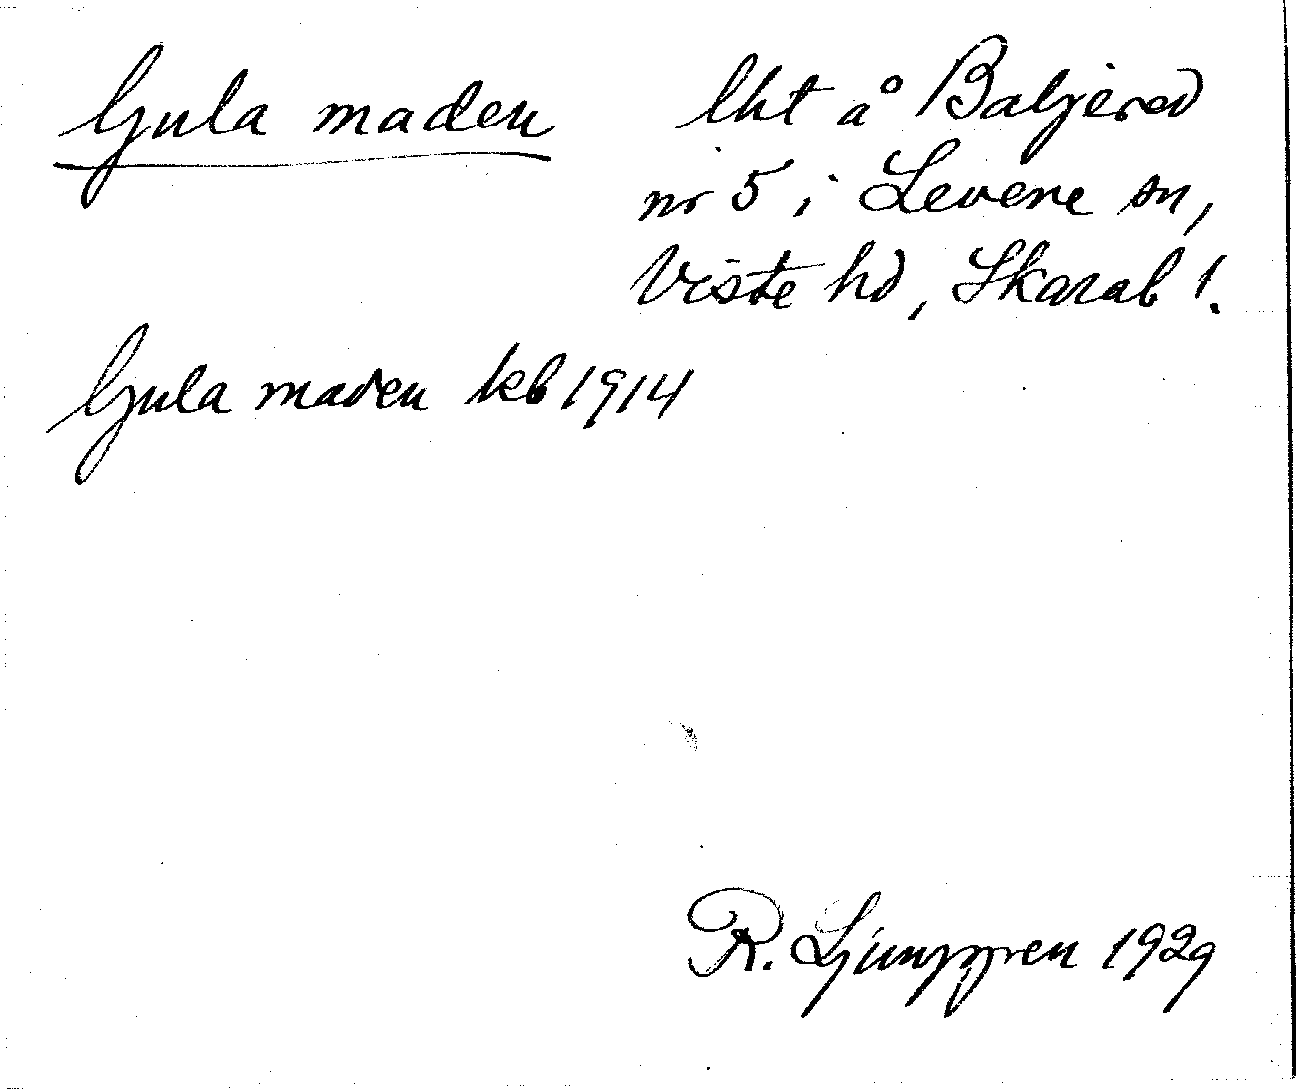 Gula maden
lht å Baljered
nr 5 i Levene sn,
Viste hd, Skarab l.
Gula maden kb 1914
R. Ljunggren 1929